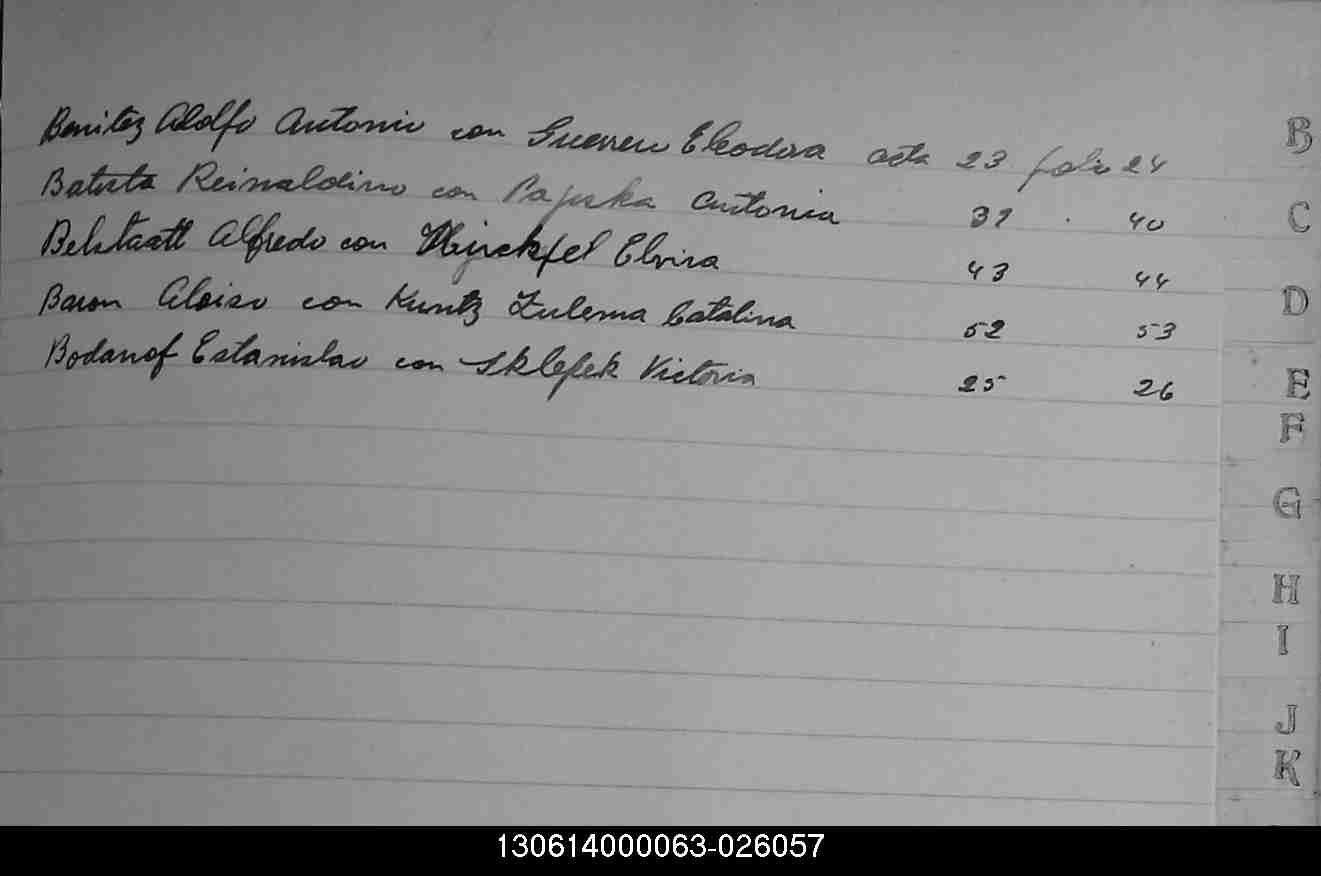 Benitez Adolfo Antonio con Guerrero Eleodora acta 23 folio 24
Batista Reinaldino con Antonia 39 . 40
Alfredo con Elvira 43 44
Baron Aloiso con Kuntz Zulema Catalina 52 53
Bodanof Estanislao con Sklepek Victoria 25 26
B
C
D
E
F
G
H
I
J
K
130614000063-026057